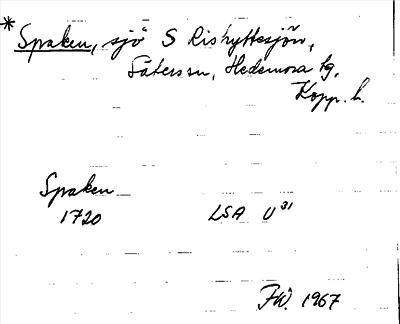 * Spaken, sjö S Rishyttesjön,
Säters sn, Hedemora tg,
Kopp. l.
Spaken
1720 LSA U³¹
F.W. 1967